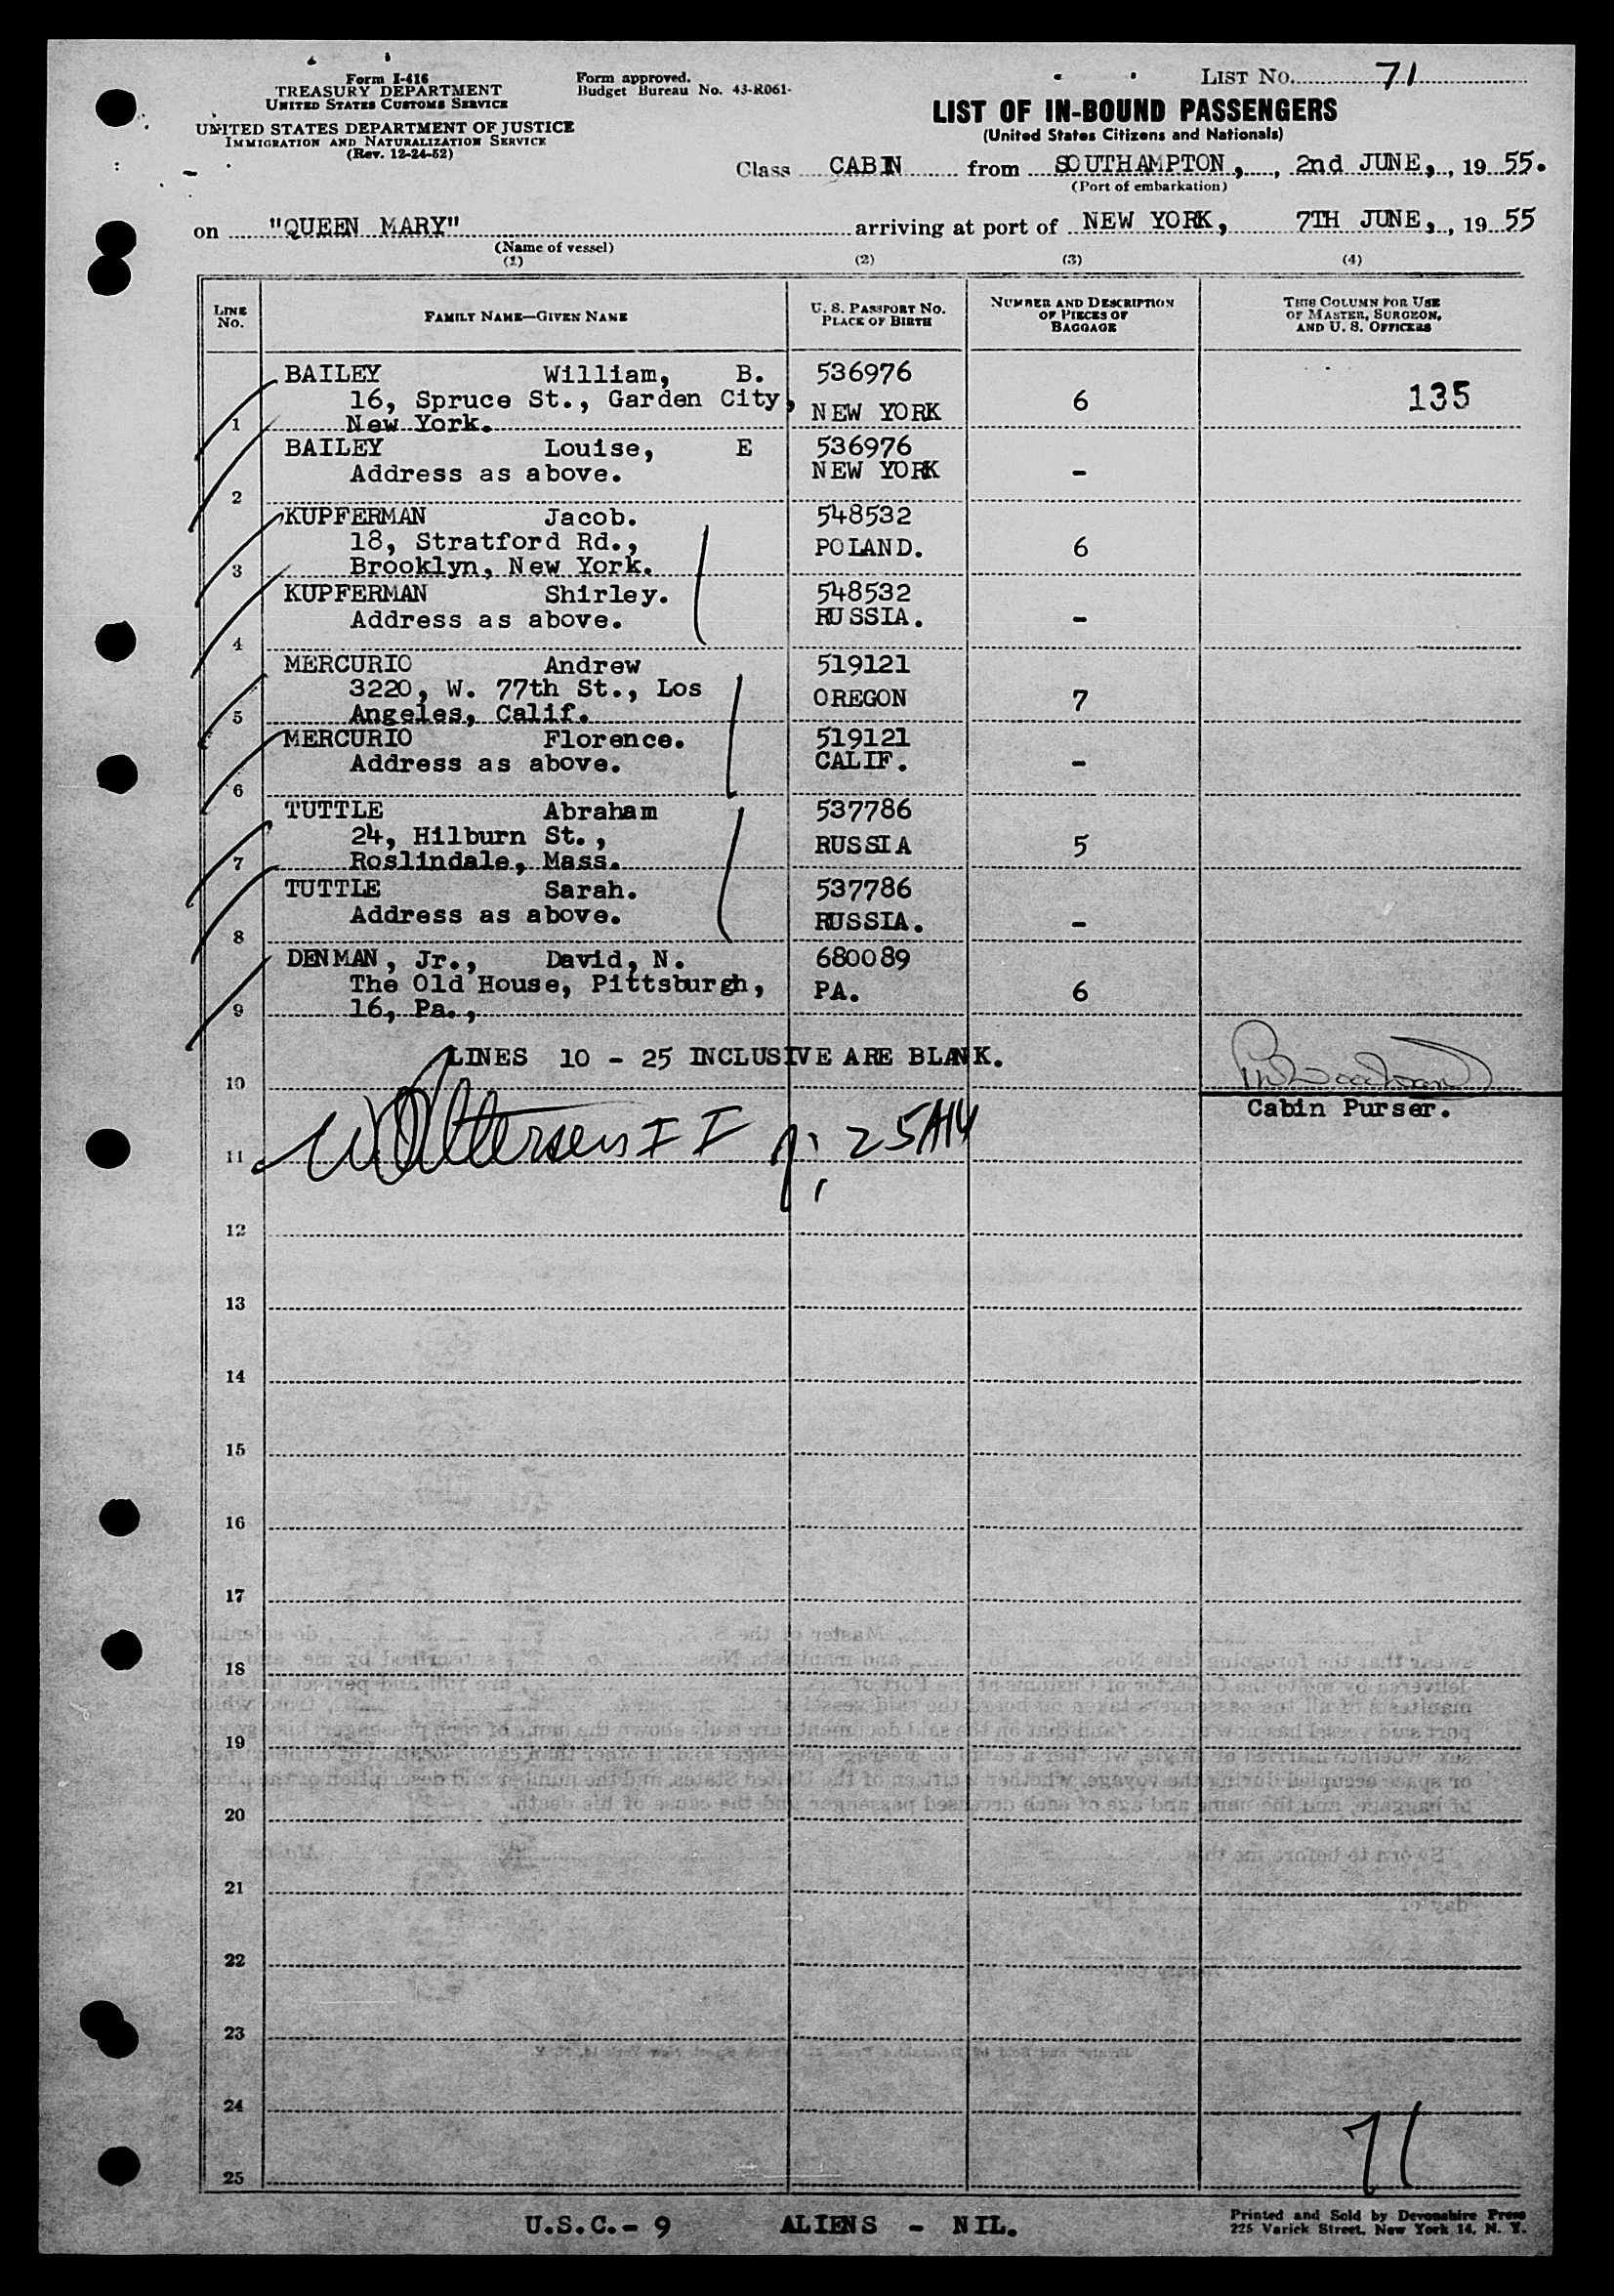 Form I-416
TREASURY DEPARTMENT
UNITED STATES CUSTOMS SERVICE
UNITED STATES DEPARTMENT OF JUSTICE
IMMIGRATION AND NATURALIZATION SERVICE
(Rev. 12-24-52)
Form approved.
Budget Bureau No. 43-R061-
LIST NO. 71
LIST OF IN-BOUND PASSENGERS
(United States Citizens and Nationals)
Class CABIN from SOUTHAMPTON, , 2nd JUNE, , 19 55.
(Port of embarkation)
on "QUEEN MARY" arriving at port of NEW YORK, 7TH JUNE, , 19 55
(Name of vessel)
(1) (2) (3) (4)
LINE NO. FAMILY NAME—GIVEN NAME U. S. PASSPORT NO. PLACE OF BIRTH NUMBER AND DESCRIPTION OF PIECES OF BAGGAGE THIS COLUMN FOR USE OF MASTER, SURGEON, AND U. S. OFFICERS
BAILEY William, B. 536976
16, Spruce St., Garden City, NEW YORK 6 135
1 New York.
BAILEY Louise, E 536976
Address as above. NEW YORK -
2
KUPFERMAN Jacob. 548532
18, Stratford Rd., POLAND. 6
3 Brooklyn, New York.
KUPFERMAN Shirley. 548532
Address as above. RUSSIA. -
4
MERCURIO Andrew 519121
3220, W. 77th St., Los OREGON 7
5 Angeles, Calif.
MERCURIO Florence. 519121
Address as above. CALIF. -
6
TUTTLE Abraham 537786
24, Hilburn St., RUSSIA 5
7 Roslindale, Mass.
TUTTLE Sarah. 537786
Address as above. RUSSIA. -
8
DENMAN, Jr., David, N. 680089
The Old House, Pittsburgh, PA. 6
9 16, Pa.,
LINES 10 - 25 INCLUSIVE ARE BLANK.
10
Cabin Purser.
11
12
13
14
15
16
17
18
19
20
21
22
23
24
71
25
U.S.C.- 9 ALIENS - NIL.
Printed and Sold by Devonshire Press
225 Varick Street, New York 14, N. Y.